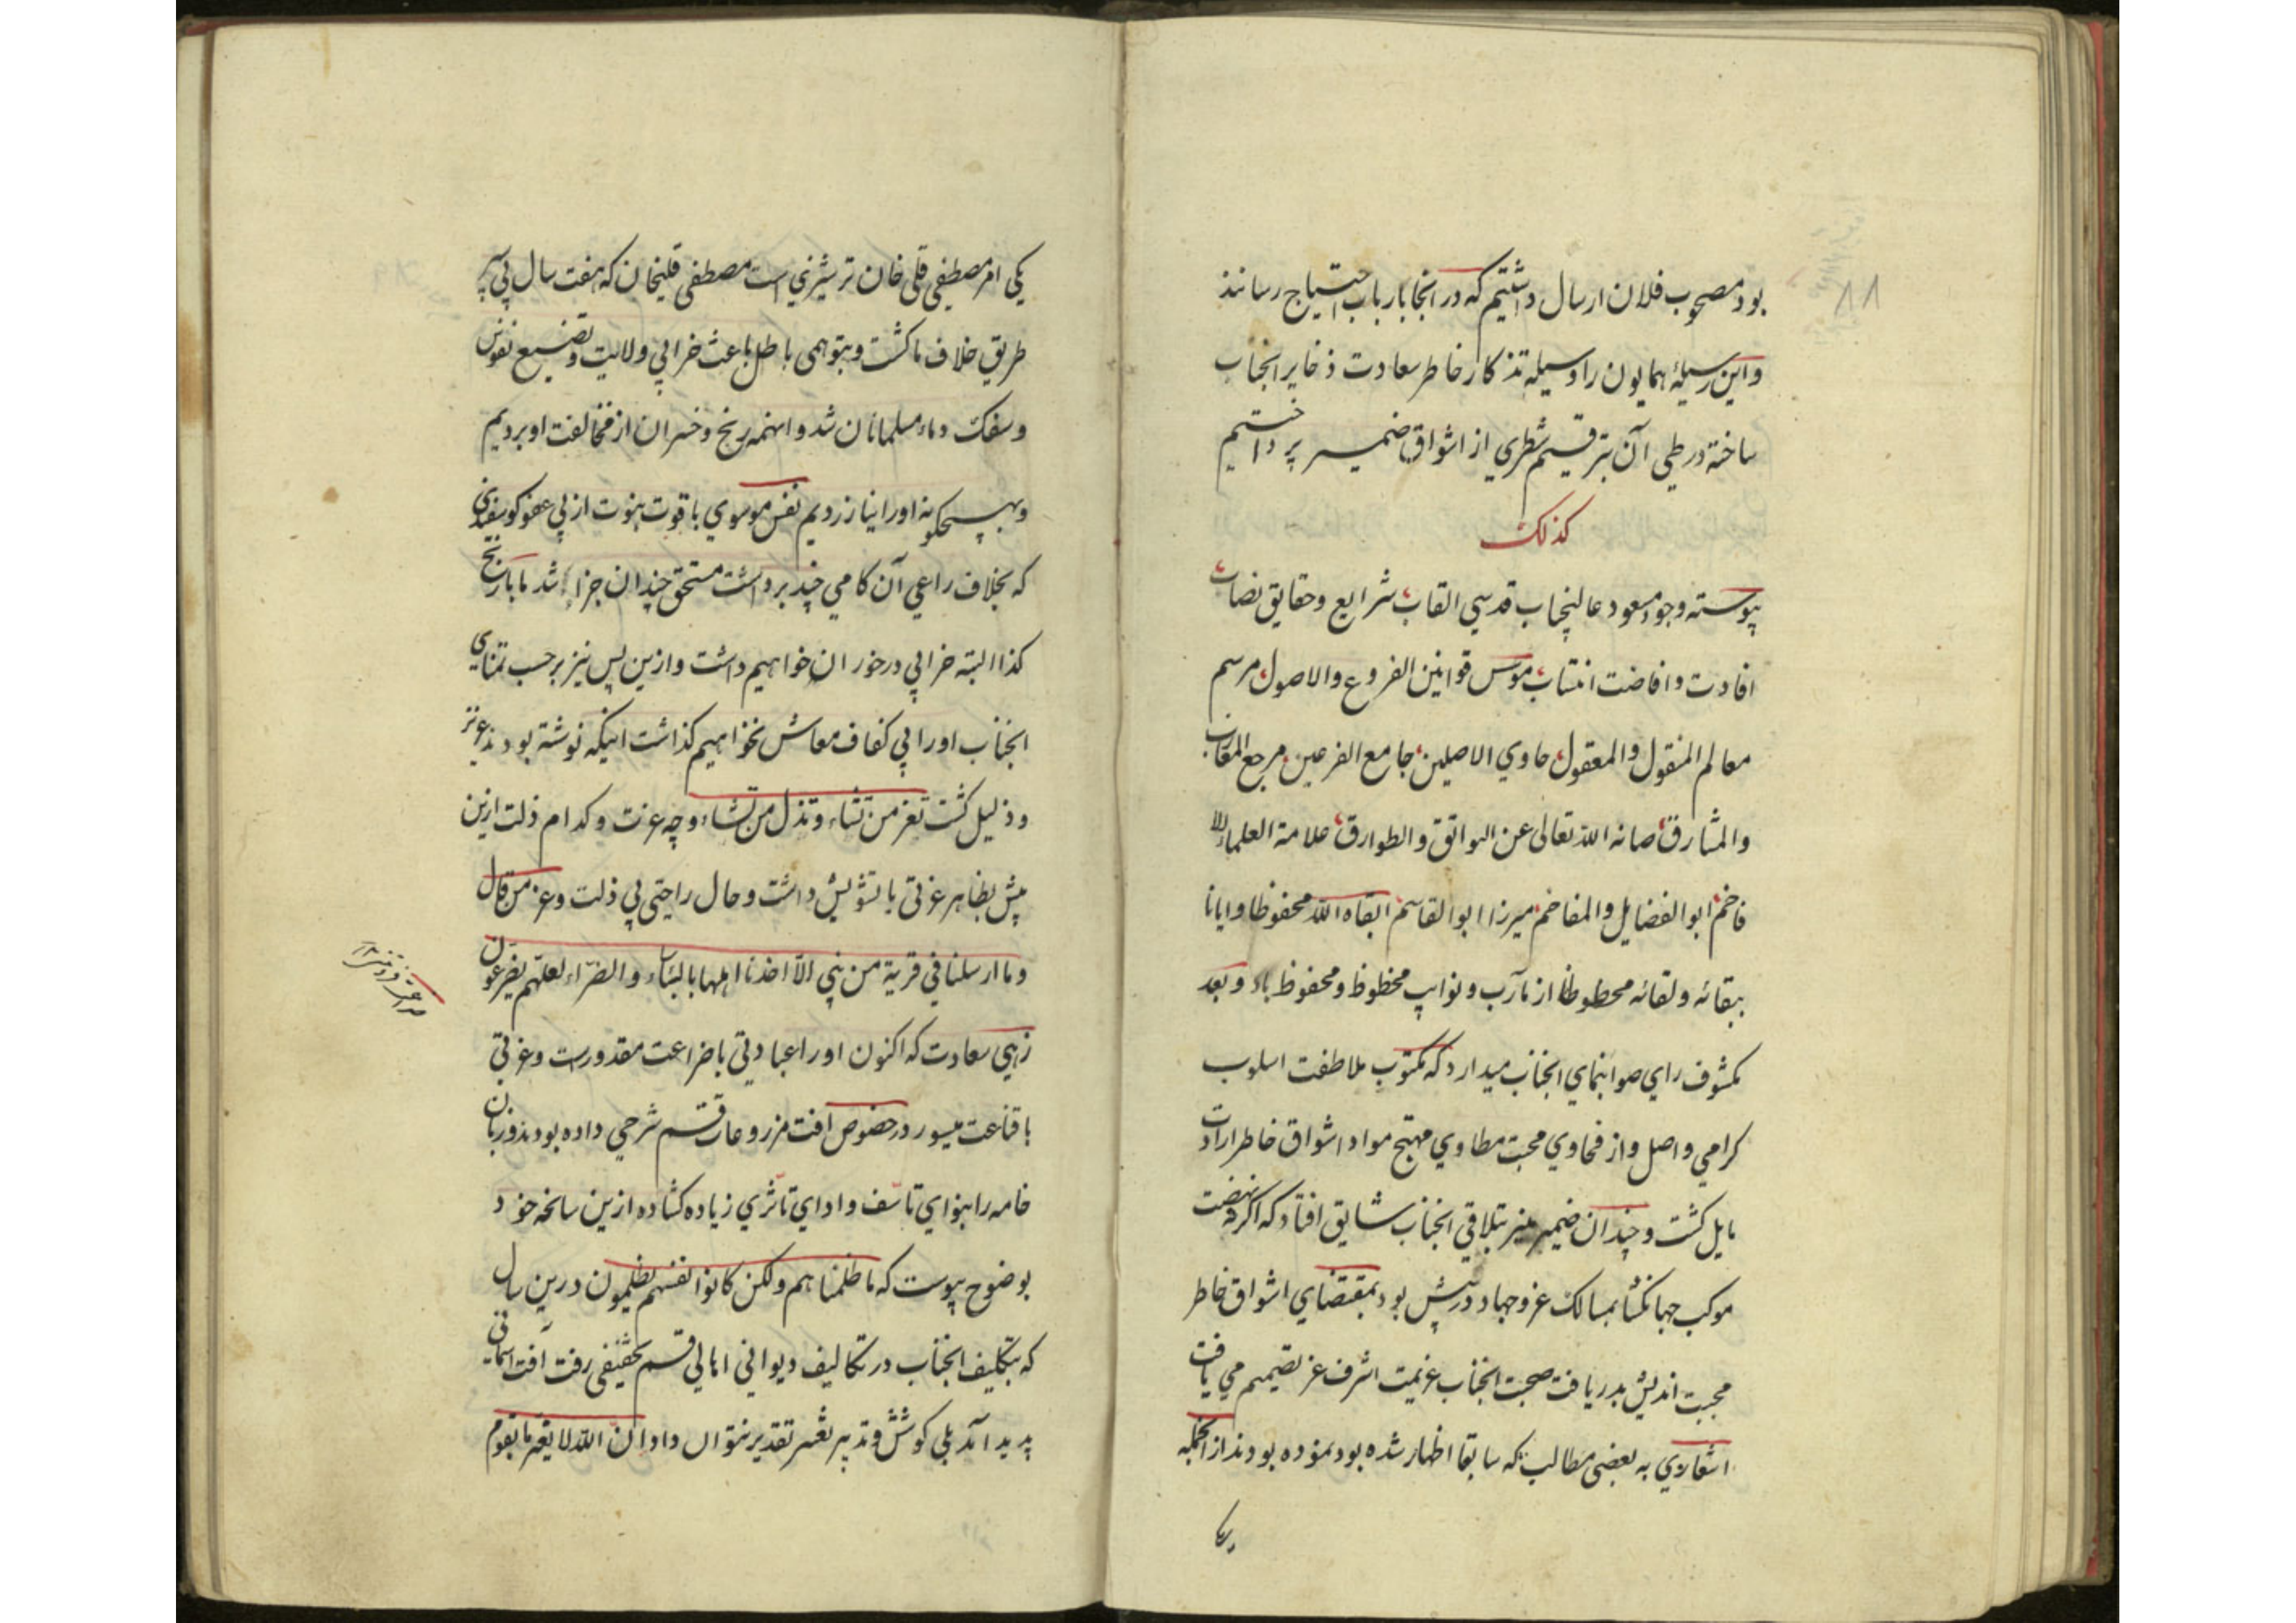 ٨٨
بود مصحوب فلان ارسال داشتیم که در انجا بارباب احتیاج رسانند
و این رسیلهٔ همایون را وسیله تذکار خاطر سعادت ذخایر انجناب
ساخته در طی آن بترقیم شطری از اشواق ضمیر پرداختیم
کذلک
پیوسته وجود مسعود عالیجناب قدسی القاب شرایع و حقایق نصاب
افادت و افاضت انتساب موسس قوانین الفروع والاصول مرسم
معالم المنقول والمعقول حاوی الاصلین جامع الفرعین مرجع المغارب
والمشارق صانه الله تعالی عن البوائق والطوارق علامة العلماء الا
فاخم ابوالفضایل والمفاخم میرزا ابوالقاسم ابقاه الله محفوظا و ایانا
ببقائه و لقائه محظوظا از مآرب و نوایب محظوظ و محفوظ باد و بعد
مکشوف رای صوابنمای انجناب میدارد که مکتوب ملاطفت اسلوب
کرامی واصل و از فحاوی محبت مطاوی مهیج مواد اشواق خاطر ارادت
مایل کشت و چندان ضمیر منیر بتلاقی انجناب شایق افتاد که اکر نهضت
موکب جهانکشا بمسالک غز و جهاد در پیش بود بمقتضای اشواق خاطر
محبت اندیش بدریافت صحبت انجناب عزیمت اشرف عز تصمیم می یافت
اشعاری به بعضی مطالب که سابقا اظهار شده بود نموده بودند از انجمله
یکی امر مصطفی قلی خان ترشیزی است مصطفی قلیخان که هفت سال پی سپر
طریق خلاف ما کشت و بتوهمی باطل باعث خرابی ولایت و تضییع نفوس
و سفک دماء مسلمانان شد و اینهمه رنج و خسران از مخالفت او بردیم
و بهیچکونه او را نیاز ردیم نفس موسوی با قوت نبوت از پی عفو کوسفندی
که بخلاف راعی آن کامی چند برداشت مستحق چندان جزا شد ما با رنج
کذا البته خرابی درخور ان خواهیم داشت و ازین پس نیز برحسب تمنای
انجناب او را بی کفاف معاش نخواهیم کذاشت اینکه نوشته بودند عزیز
و ذلیل کشت تعز من تشاء و تذل من تشاء و چه عزت و کدام ذلت ازین
پیش بظاهر عزتی با تشویش داشت و حال راحتی بی ذلت و عز من قال
و ما ارسلنا فی قریة من نبی الا اخذنا اهلها بالباساء والضراء لعلهم یضرعون
زهی سعادت که اکنون او را عبادتی با ضراعت مقدورست و عزتی
با قناعت میسور در خصوص افت مزروعات قسم شرحی داده بودند و زبان
خامه را بنوای تاسف و ادای تاثری زیاده کشاده ازین سانحه خود
بوضوح پیوست که ما ظلمناهم ولکن کانوا انفسهم یظلمون درین سال
که بتکلیف انجناب در تکالیف دیوانی اهالی قسم تخفیفی رفت آفت آسمانی
پدید آمد بلی کوشش و تدبیر تغییر تقدیر نتوان داد ان الله لا یغیر ما بقوم